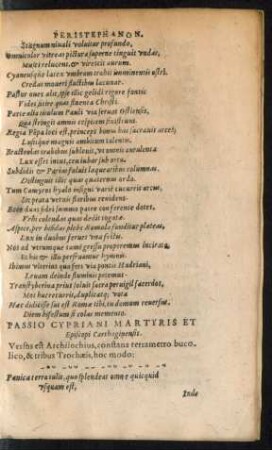 PERISTEPHANON.
Stagnum niuali voluitur profundo,
Omnicolor vitreas pictura superne tinguit vndas,
Musci relucent, & virescit aurum.
Cyaneusque latex vmbram trahit imminentis ostri.
Credas moueri fluctibus lacunar.
Pastor oues alit ipse illic gelidi rigore fontis
Videt sitire quas fluenta Christi.
Parte alia titulum Pauli via seruat Ostiensis,
Qua stringit amnis cespitem sinistrum.
Regia pompa loci est, princeps bonus has sacrauit arces,
Lusitque magnis ambitum talentis.
Bracteolas trabibus subleuit, vt omnis aurulenta
Lux esset intus, ceu iubar sub ortu.
Subdidit & Parias fuluis laquearibus columnas.
Distinguit illic quas quaternus ordo.
Tum Camyros hyalo insigni varie cucurrit arcus,
Sic prata vernis floribus renident.
Ecce duas fidei summo patre conferente dotes,
Vrbi colendas quas dedit togatæ.
Aspice, per bifidas plebs Romula funditur plateas,
Lux in duobus feruet vna festis.
Nos ad vtrumque tamen gressu properemus incitato,
Et his & illis perfruamur hymnis.
Ibimus vlterius qua fert via pontis Hadriani,
Leuam deinde fluminis petemus.
Transtyberina prius soluit sacra peruigil sacerdos,
Mox huc recurrit, duplicatque vota
Hæc didicisse sat est Romæ tibi, tu domum reuersus,
Diem bifestum si colas memento.
PASSIO CYPRIANI MARTYRIS ET
Episcopi Carthaginensis.
Versus est Archilochius, constans tetrametro buco-
lico, & tribus Trochæis, hoc modo:
Punica terra tulit, quo splendeat omne quicquid
vsquam est,
Inde